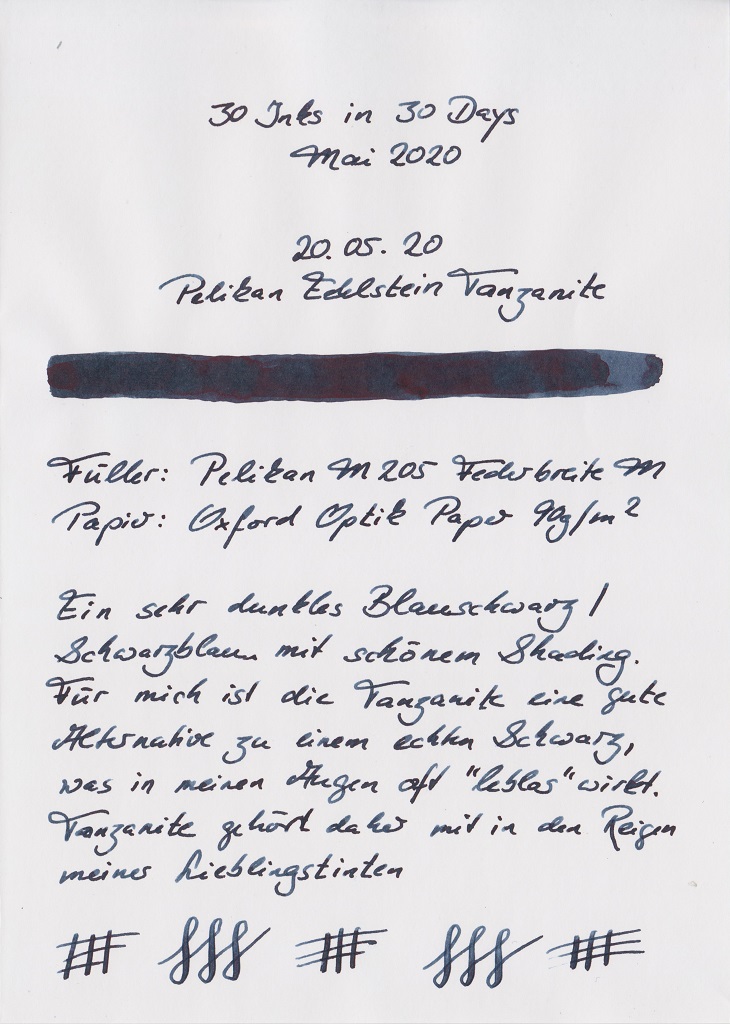 30 Inks in 30 Days
Mai 2020
20.05.20
Pelikan Edelstein Tanzanite
Füller: Pelikan M205 Federbreite M
Papier: Oxford Optik Paper 90g/m²
Ein sehr dunkles Blauschwarz /
Schwarzblau mit schönem Shading.
Für mich ist die Tanzanite eine gute
Alternative zu einem echten Schwarz,
was in meinen Augen oft "leblos" wirkt.
Tanzanite gehört daher mit in den Reigen
meiner Lieblingstinten